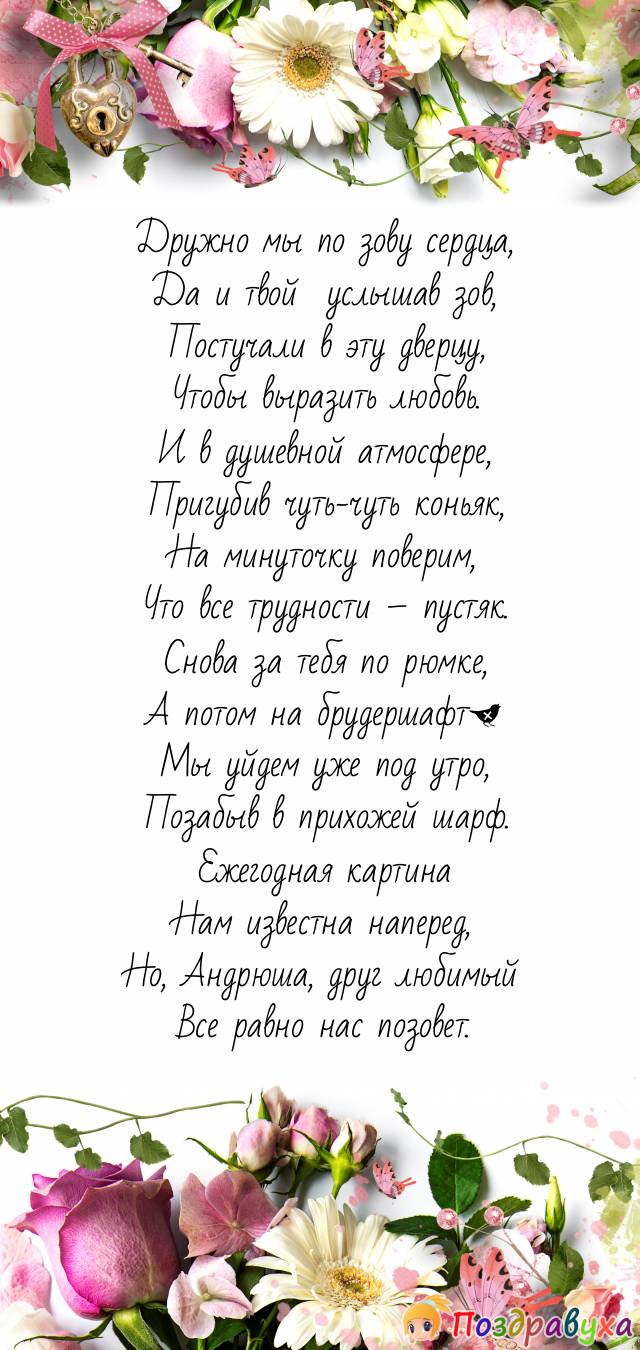 Дружно мы по зову сердца,
Да и твой услышав зов,
Постучали в эту дверцу,
Чтобы выразить любовь.
И в душевной атмосфере,
Пригубив чуть-чуть коньяк,
На минуточку поверим,
Что все трудности – пустяк.
Снова за тебя по рюмке,
А потом на брудершафт
Мы уйдем уже под утро,
Позабыв в прихожей шарф.
Ежегодная картина
Нам известна наперед,
Но, Андрюша, друг любимый
Все равно нас позовет.
Поздравуха